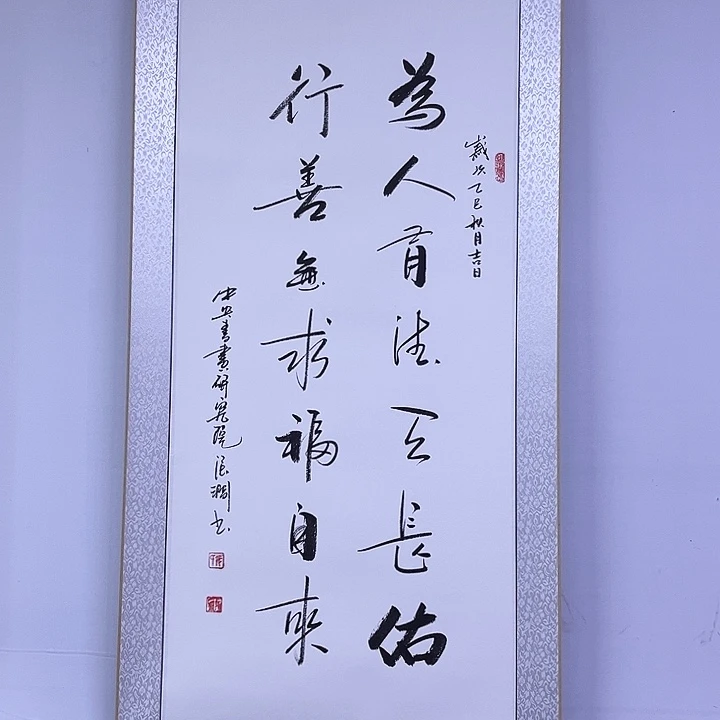 歲次乙巳秋月吉日
為人有德天長佑
行善無求福自來
中央書畫研究院